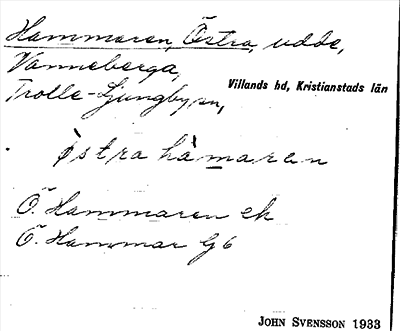 Hammaren, Östra, udde,
Vanneberga,
Villands hd, Kristianstads län
Trolle-Ljungby sn,
östra hàmaren
Ö. Hammaren ek
Ö. Hammar G6
JOHN SVENSSON 1933